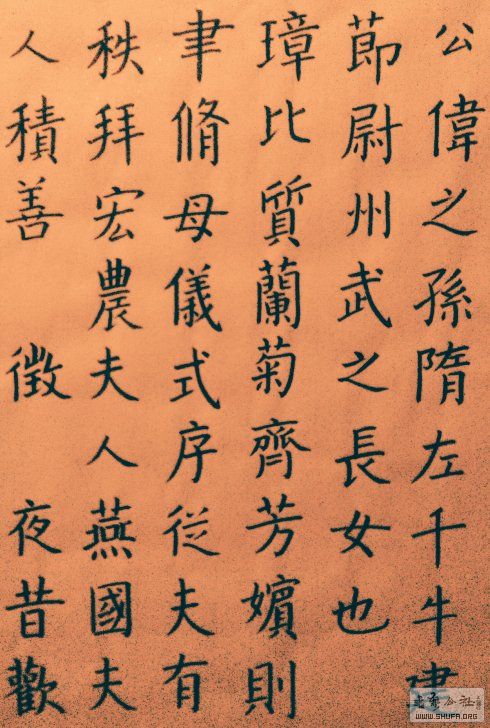 公偉之孫隋左千牛建
節尉州武之長女也
璋比質蘭菊齊芳嬪則
聿脩母儀式序従夫有
秩拜宏農夫人燕國夫
人積善 徴 夜昔歡
WWW.SHUFA.ORG